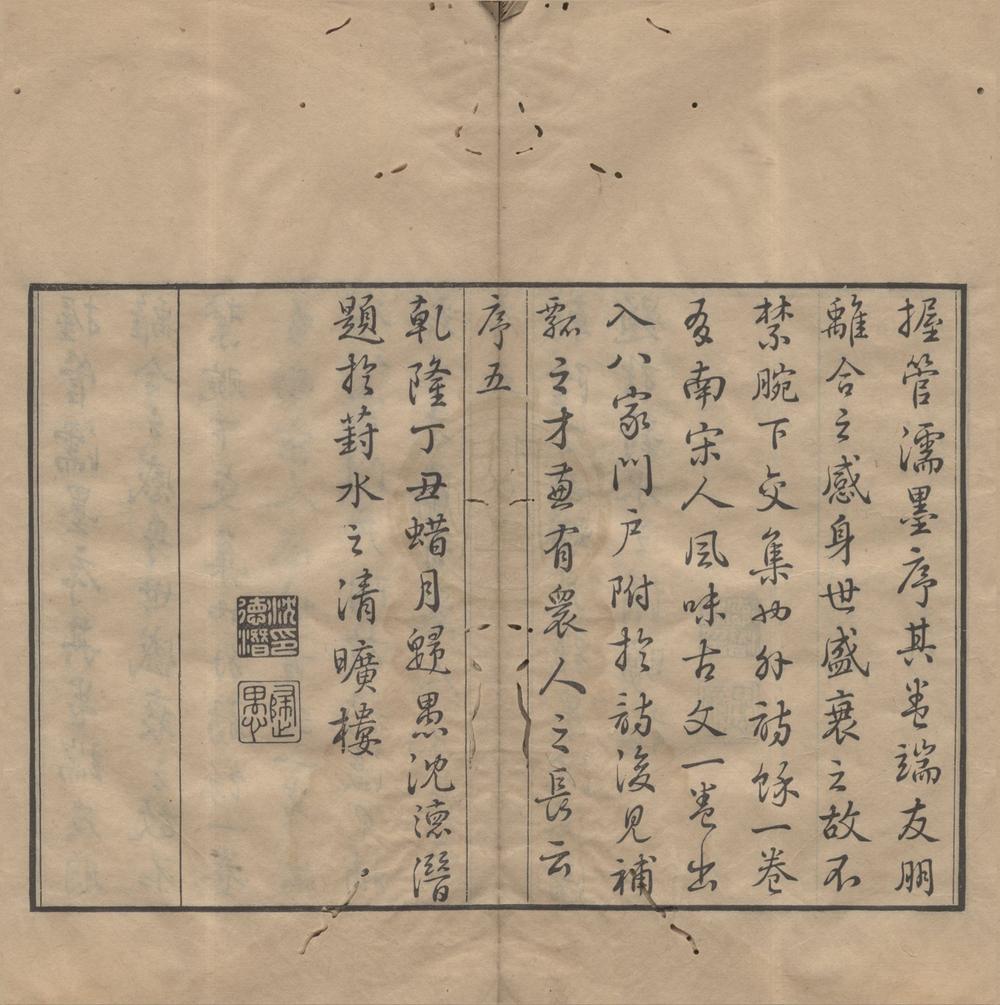 握管濡墨序其卷端友朋
離合之感身世盛衰之故不
禁腕下交集也外詩餘一卷
友南宋人風味古文一卷出
入八家門戶附於詩後見補
瓢之才兼有衆人之長云
序五
乾隆丁丑蜡月歸愚沈德潛
題於葑水之清曠樓
沈印德潛
歸愚